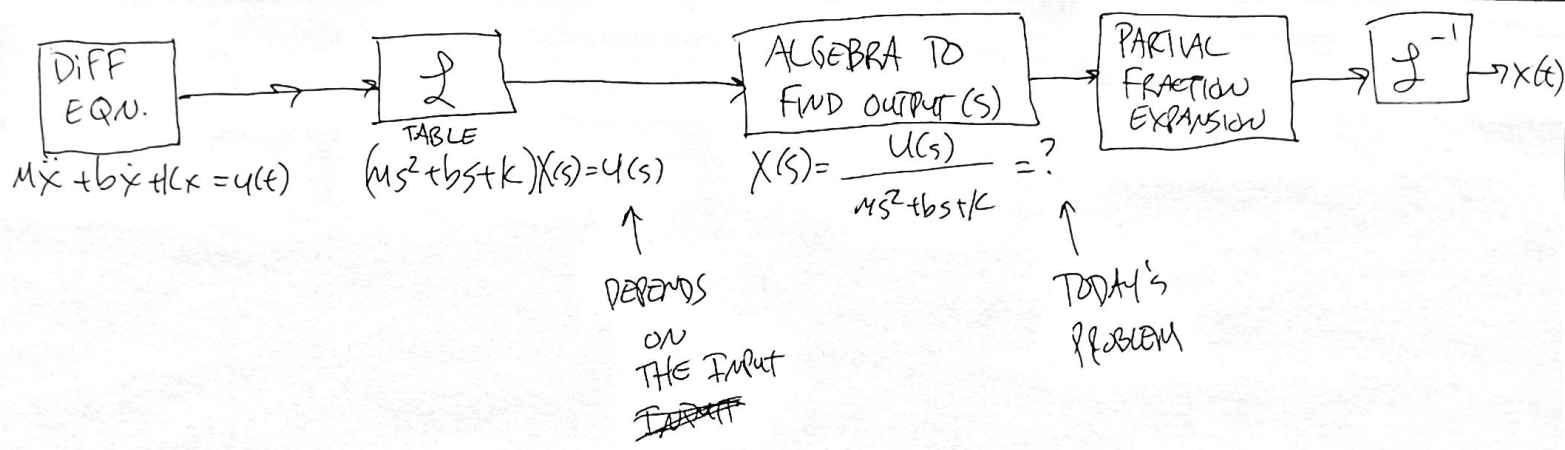 DIFF
EQN.
Mẍ + bẋ + kx = u(t)
ℒ
TABLE
(Ms² + bs + k)X(s) = U(s)
DEPENDS
ON
THE INPUT
ALGEBRA TO
FIND OUTPUT(S)
X(s) = U(s) / (Ms² + bs + k) = ?
TODAY'S
PROBLEM
PARTIAL
FRACTION
EXPANSION
ℒ⁻¹
x(t)